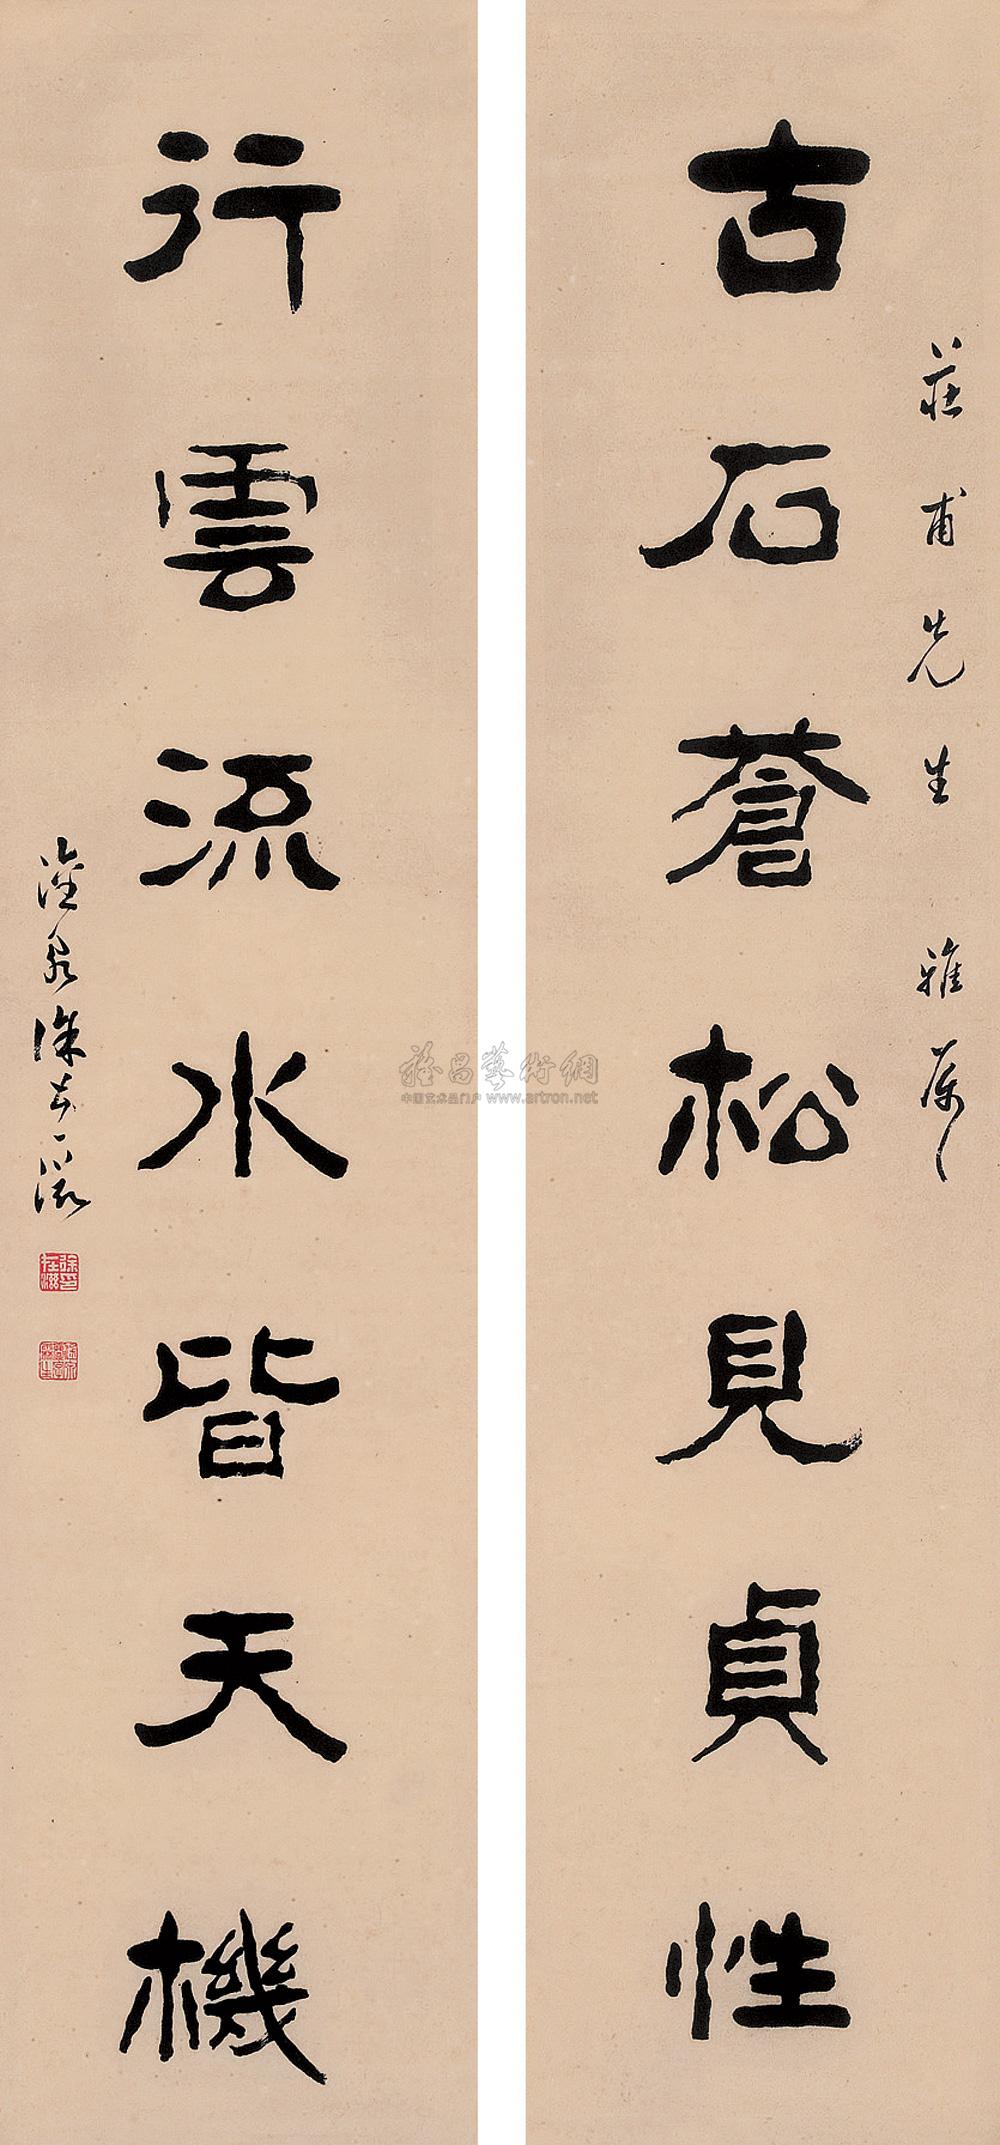 古石蒼松見貞性
莊甫先生雅屬
行雲流水皆天機
雅昌藝術網
中国艺术品门户 www.artron.net